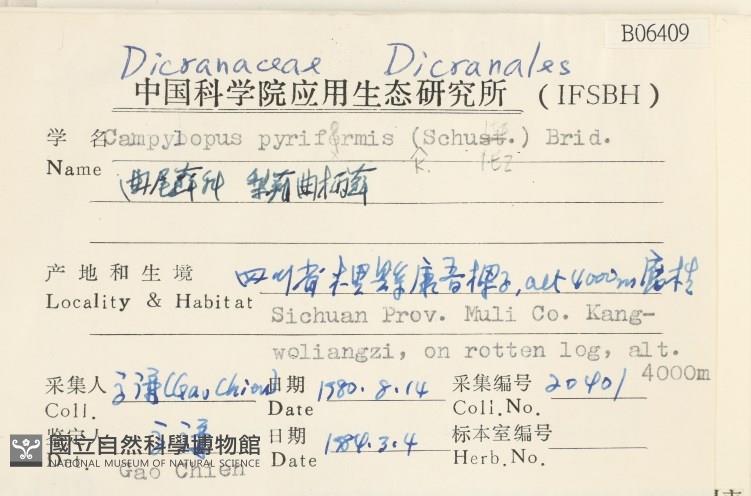 B06409
Dicranaceae Dicranales
中国科学院应用生态研究所 (IFSBH)
学 名 Campylopus pyriformis (Schust.) Brid.
Name R. ltz
曲尾藓科 梨蒴曲柄藓
产地和生境 四川省木里县康吾梁子, alt 4000m 腐木
Locality & Habitat Sichuan Prov. Muli Co. Kang-
woliangzi, on rotten log, alt.
4000m
采集人 (Gao Chien) 日期 1980.8.14 采集编号 20401
Coll. Date Coll.No.
鉴定人 日期 1984.3.4 标本室编号
Det. Gao Chien Date Herb.No.
國立自然科學博物館
NATIONAL MUSEUM OF NATURAL SCIENCE